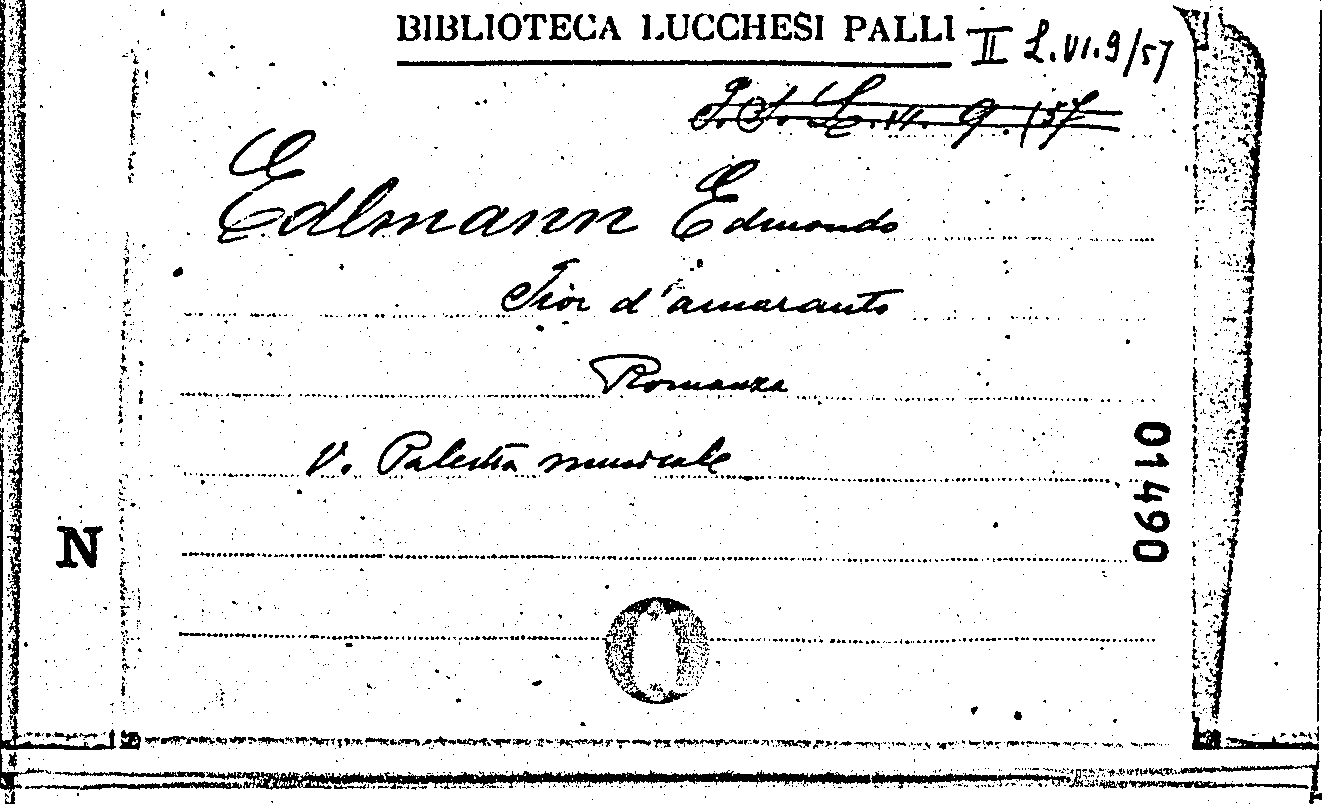 BIBLIOTECA LUCCHESI PALLI
II L.VI.9/57
L.VI. 9.(57
Edlmann Edmondo
Fior d'amaranto
Romanza
V. Palestra musicale
01490
N